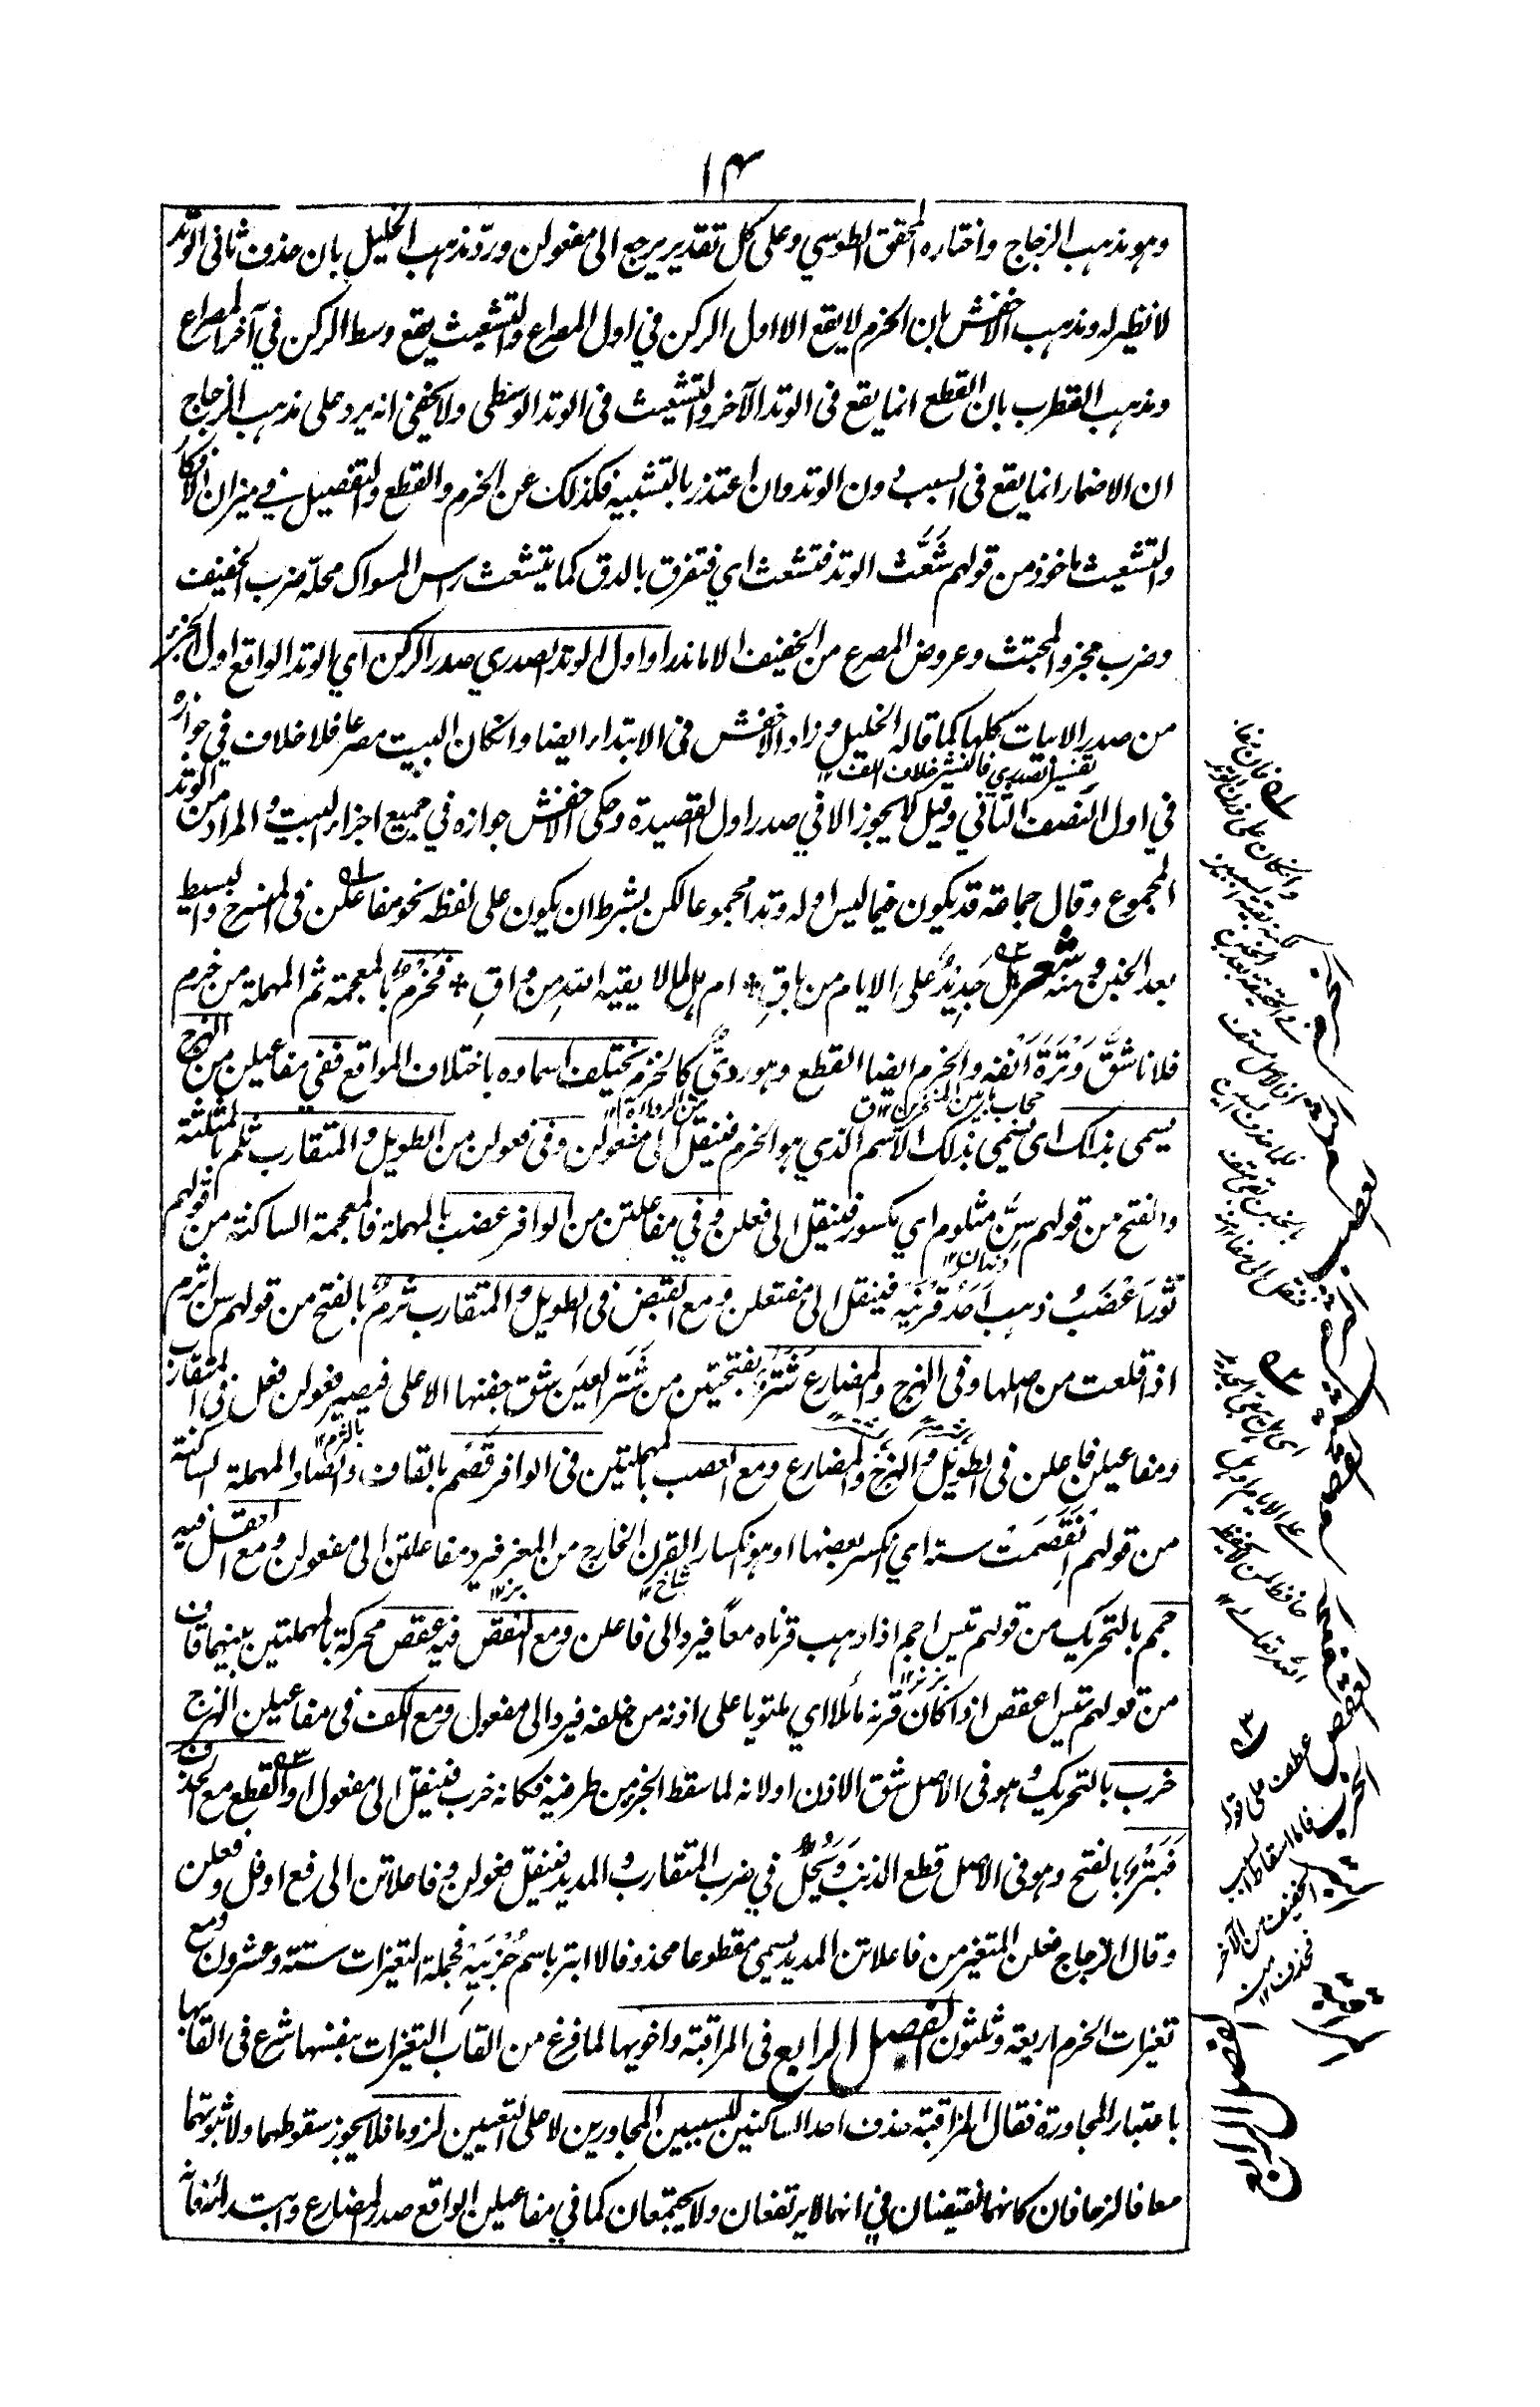 ١٤
وهو مذهب الزجاج واختاره المحقق الطوسي وعلى كل تقدير يرجع الى مفعولن وردّ مذهب الخليل بان حذف ثانى الوتد
لا نظير له ومذهب الاخفش بان الخرم لا يقع الا اول الركن في اول المصراع والتشعيث يقع وسط الركن في آخر المصراع
ومذهب القطرب بان القطع انما يقع فى الوتد الآخر والتشعيث فى الوتد الوسطى ولا يخفى انه يرد على مذهب الزجاج
ان الاضمار انما يقع فى السبب دون الوتد وان اعتذر بالتشبيه فكذلك عن الخرم والقطع والتفصيل في ميزان الافكار
والتشعيث ماخوذ من قولهم شَعَّث الوتد فتشعث اي فتفرق بالدق كما يتشعث راس المسواك محلّه ضرب الخفيف
وضرب مجزو المجتث وعروض المصرع من الخفيف الا ما ندر او اول الوتد الصدري صدر الركن اي الوتد الواقع اول الجزء
من صدر الابيات كلها كما قاله الخليل وزاد الاخفش فى الابتداء ايضا وان كان البيت مصرعا فلا خلاف في جوازه
تفسير الصدري فالنشر خلاف اللف ١٢
في اول النصف الثاني وقيل لا يجوز الا في صدر اول القصيدة وحكى الاخفش جوازه في جميع اجزاء البيت والمراد من الوتد
المجموع وقال جماعة قد يكون فيما ليس اوله وتدا مجموعا لكن بشرط ان يكون على لفظه نحو مفاعلن فى المنسرح والبسيط
بعد الخبن ومنه شعر هل جديدٌ على الايام من باقٍ * ام هل لما لا يقيه الله من واقٍ * فخرم بالمعجمة ثم المهملة من خرم
فلانا شقّ وَتْرَةَ اَنْفه والخرم ايضا القطع وهو رديٌّ كالخزم يختلف اسماوه باختلاف المواقع ففي مفاعيلن من الهزج
حجاب بين المنخرين ١٢ ق من الرداءة ١٢
يسمى بذاك اى يسمى بذلك الاسم الذي هو الخرم فينقل الى مفعولن وفى فعولن من الطويل والمتقارب ثلم بالمثلثة
والفتح من قولهم سنّ مثلوم اي مكسور فينقل الى فعلن وفي مفاعلتن من الوافر عضب بالمهملة فالمعجمة الساكنة من قولهم
ثور اَعْضَبُ ذهب اَحَد قرنَيه فينقل الى مفتعلن ومع القبض فى الطويل والمتقارب ثرم بالفتح من قولهم سن اثرم
اذا قلعت من اصلها وفى الهزج والمضارع شتر بفتحتين من شَتَر العين شق جفنها الاعلى فيصير فعولن فعل فى المتقارب
ومفاعيلن فاعلن فى الطويل والهزج والمضارع ومع العصب بالمهملتين فى الوافر قصم بالقاف والصاد المهملة الساكنة
من قولهم اِنقصَمت سنه اي انكسر بعضها او هو انكسار القرن الخارج من المعز فيرد مفاعلتن الى مفعولن ومع العقل فيه
جمم بالتحريك من قولهم تيس اجم اذا ذهب قرناه معاً فيرد الى فاعلن ومع النقص فيه عقص محركة بالمهملتين بينهما قاف
من قولهم تيس اعقص اذا كان قرنه مائلا اي ملتويا على اذنه من خلفه فيرد الى مفعول ومع الكف فى مفاعيلن الهزج
خرب بالتحريك وهو فى الاصل شق الاذن او لانه لما سقط الجزء من طرفيه فكانه خرب فينقل الى مفعول او القطع مع الحذف
فَبَتْرٌ بالفتح وهو فى الاصل قطع الذنب وَيحُلّ في ضرب المتقارب والمديد فينقل فعولن وفاعلاتن الى فع او فل وفعلن
وقال الزجاج فعلن المتغير من فاعلاتن المديد يسمى مقطوعا محذوفا لا ابتر باسم جُزْئيه فجملة التغيرات ستة وعشرون ومع
تغيرات الخرم اربعة وثلثون الفصل الرابع فى المراقبة واخويها لما فرغ من القاب التغيرات بنفسها شرع فى القابها
باعتبار المجاورة فقال المراقبة حذف احد الساكنين للسببين المجاورين لا على التعيين لزوما فلا يجوز سقوطهما ولا ثبوتهما
معا فالزحافان كانهما نقيضان في انهما لا يرتفعان ولا يجتمعان كما في مفاعيلن الواقع صدر المضارع وابتدائه فانه
اى ان يبقى الجديد
على الايام
حافظ لمن لا يحفظه
الله تعالى ١٢
عطف على قوله
فاما اسقاط السبب
الخفيف من الآخر
فحذف ١٢ منه
الفصل الرابع